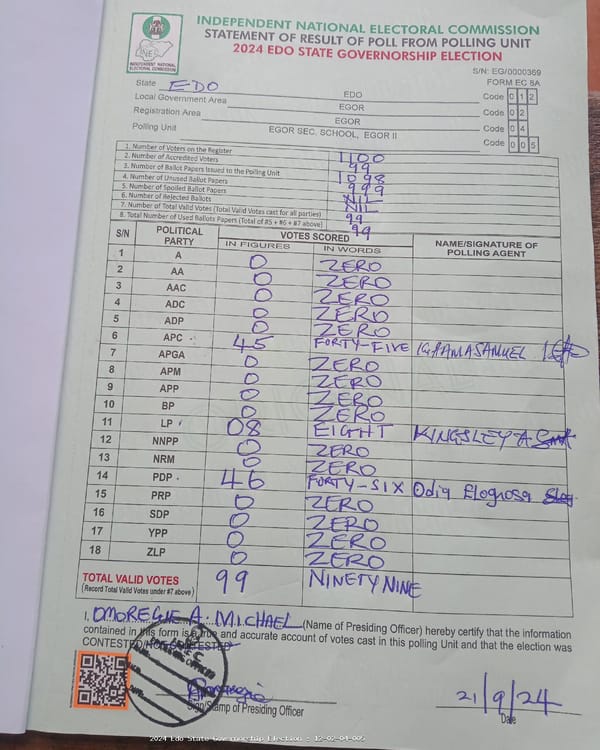 INDEPENDENT NATIONAL ELECTORAL COMMISSION
STATEMENT OF RESULT OF POLL FROM POLLING UNIT
2024 EDO STATE GOVERNORSHIP ELECTION
INEC
INDEPENDENT NATIONAL
ELECTORAL COMMISSION
S/N: EG/0000369
FORM EC 8A
State EDO EDO Code 0 1 2
Local Government Area EGOR Code 0 2
Registration Area EGOR Code 0 4
Polling Unit EGOR SEC. SCHOOL, EGOR II Code 0 0 5
1. Number of Voters on the Register 1100
2. Number of Accredited Voters 99
3. Number of Ballot Papers Issued to the Polling Unit 1098
4. Number of Unused Ballot Papers 999
5. Number of Spoiled Ballot Papers NIL
6. Number of Rejected Ballots NIL
7. Number of Total Valid Votes (Total Valid Votes cast for all parties) 99
8. Total Number of Used Ballots Papers (Total of #5 + #6 + #7 above) 99
S/N POLITICAL PARTY VOTES SCORED NAME/SIGNATURE OF POLLING AGENT
IN FIGURES IN WORDS
1 A 0 ZERO
2 AA 0 ZERO
3 AAC 0 ZERO
4 ADC 0 ZERO
5 ADP 0 ZERO
6 APC 45 FORTY-FIVE
7 APGA 0 ZERO
8 APM 0 ZERO
9 APP 0 ZERO
10 BP 0 ZERO
11 LP 08 EIGHT KINGSLEY A
12 NNPP 0 ZERO
13 NRM 0 ZERO
14 PDP 46 FORTY-SIX Odia
15 PRP 0 ZERO
16 SDP 0 ZERO
17 YPP 0 ZERO
18 ZLP 0 ZERO
TOTAL VALID VOTES 99 NINETY NINE
(Record Total Valid Votes under #7 above)
I, OMOREGIE A. MICHAEL (Name of Presiding Officer) hereby certify that the information
contained in this form is a true and accurate account of votes cast in this polling Unit and that the election was
CONTESTED/NOT CONTESTED
Sign/Stamp of Presiding Officer
21/9/24
Date
2024 Edo State Governorship Election : 12-02-04-005